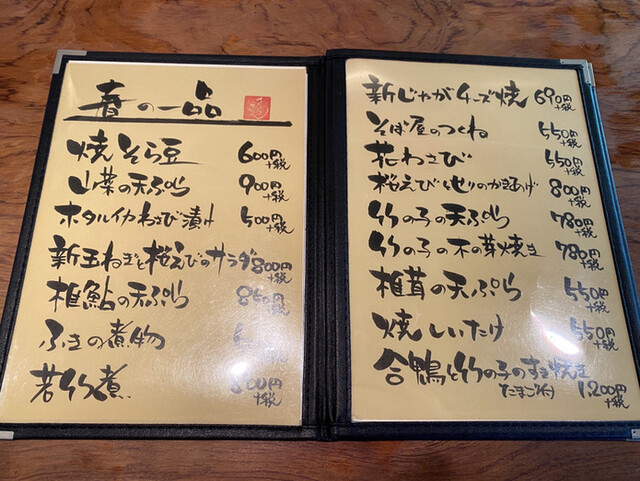 春の一品
焼そら豆 600円+税
山菜の天ぷら 900円+税
ホタルイカわさび漬け 500円+税
新玉ねぎと桜えびのサラダ 800円+税
稚鮎の天ぷら 850円+税
ふきの煮物 円+税
若竹煮 800円+税
新じゃがチーズ焼 690円+税
そば屋のつくね 550円+税
花わさび 550円+税
桜えびとせりのかきあげ 800円+税
竹の子の天ぷら 780円+税
竹の子の木の芽焼き 780円+税
椎茸の天ぷら 550円+税
焼しいたけ 550円+税
合鴨と竹の子のすき焼き
たまご付 1,200円+税